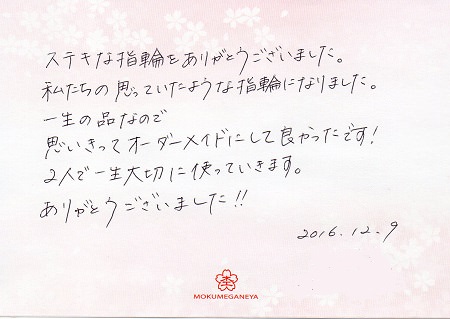 ステキな指輪をありがとうございました。
私たちの思っていたような指輪になりました。
一生の品なので
思いきってオーダーメイドにして良かったです!
2人で一生大切に使っていきます。
ありがとうございました!!
2016.12.9
MOKUMEGANEYA